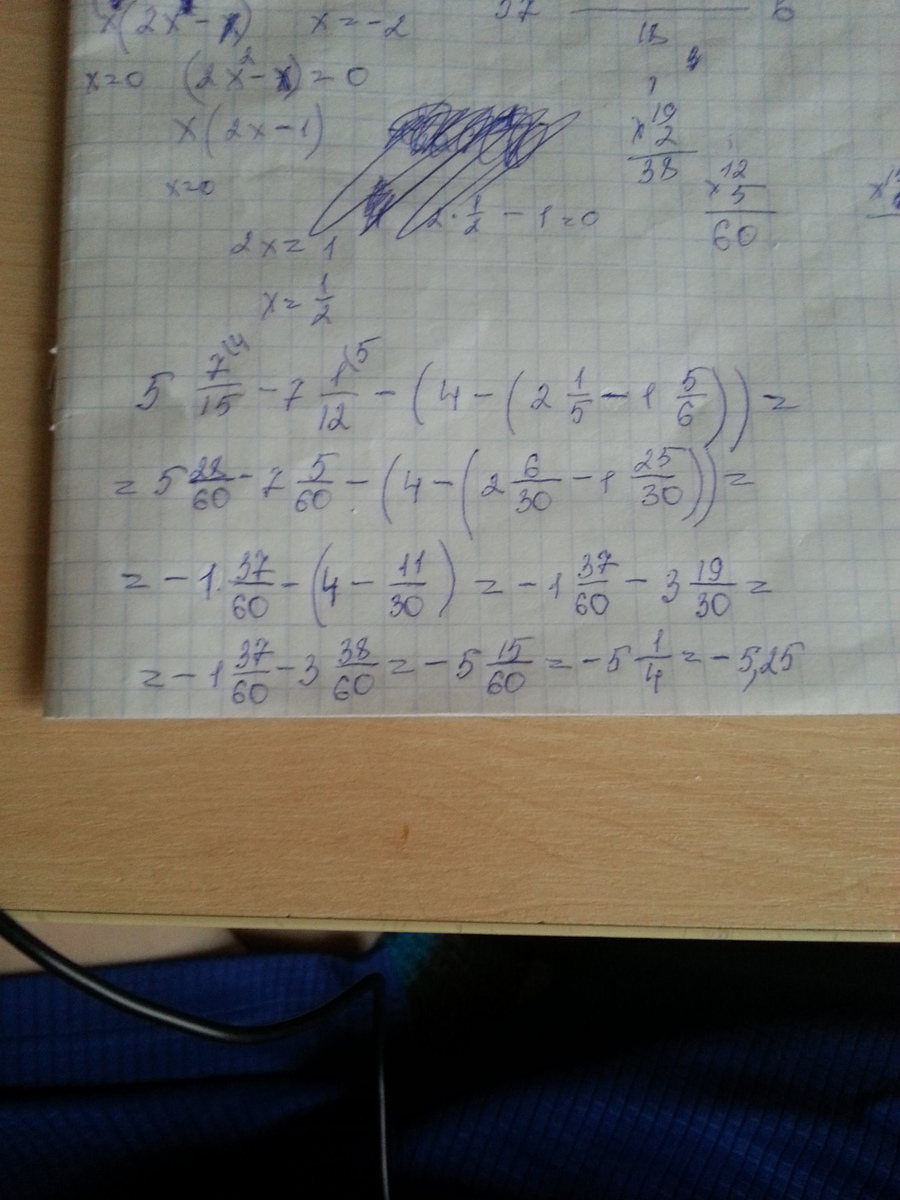 x(2x - x) x = -2 37 6
18
x=0 (2x² - x) = 0
x(2x-1) 19
× 2
38
x=0 12
× 5
60
2 · 1/2 - 1 = 0
2x = 1
x = 1/2
5 7/15 - 7 1/12 - (4 - (2 1/5 - 1 5/6)) =
= 5 28/60 - 7 5/60 - (4 - (2 6/30 - 1 25/30)) =
= -1 37/60 - (4 - 11/30) = -1 37/60 - 3 19/30 =
= -1 37/60 - 3 38/60 = -5 15/60 = -5 1/4 = -5,25